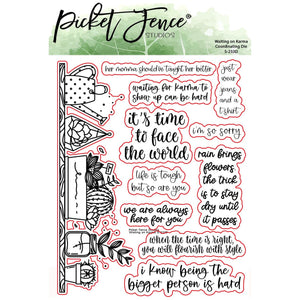 Picket Fence®
STUDIOS
Waiting on Karma
Coordinating Die
S-213D
her momma should've taught her better
waiting for karma to
show up can be hard
just
wear
pants
and a
t'shirt
it's time
to face
the world
i'm so sorry
life is tough
but so are you
rain brings
flowers
the trick
is to stay
dry until
it passes
we are always
here for you
when the time is right,
you will flourish with style
i know being the
bigger person is hard